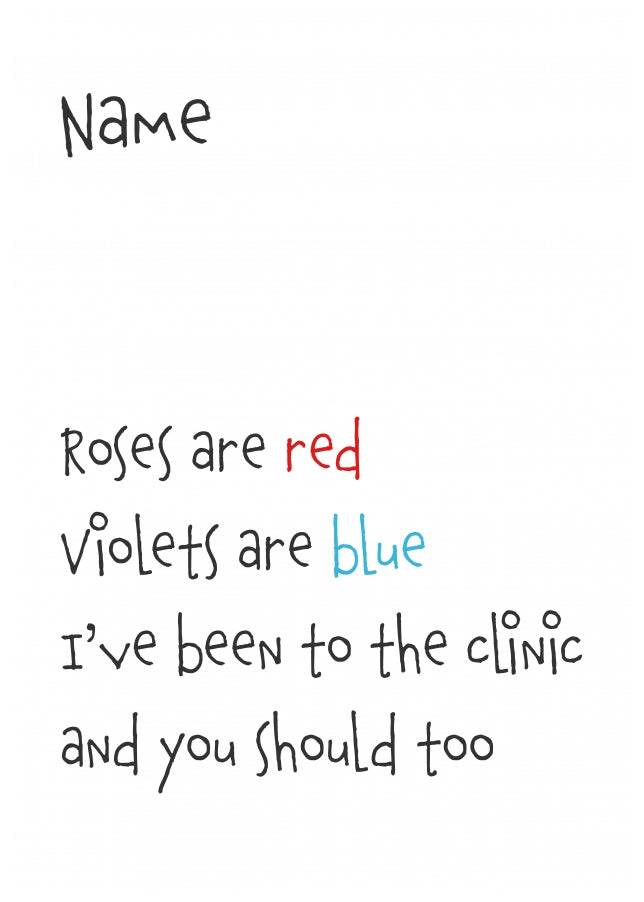 Name
Roses are red
Violets are blue
I've been to the clinic
and you should too